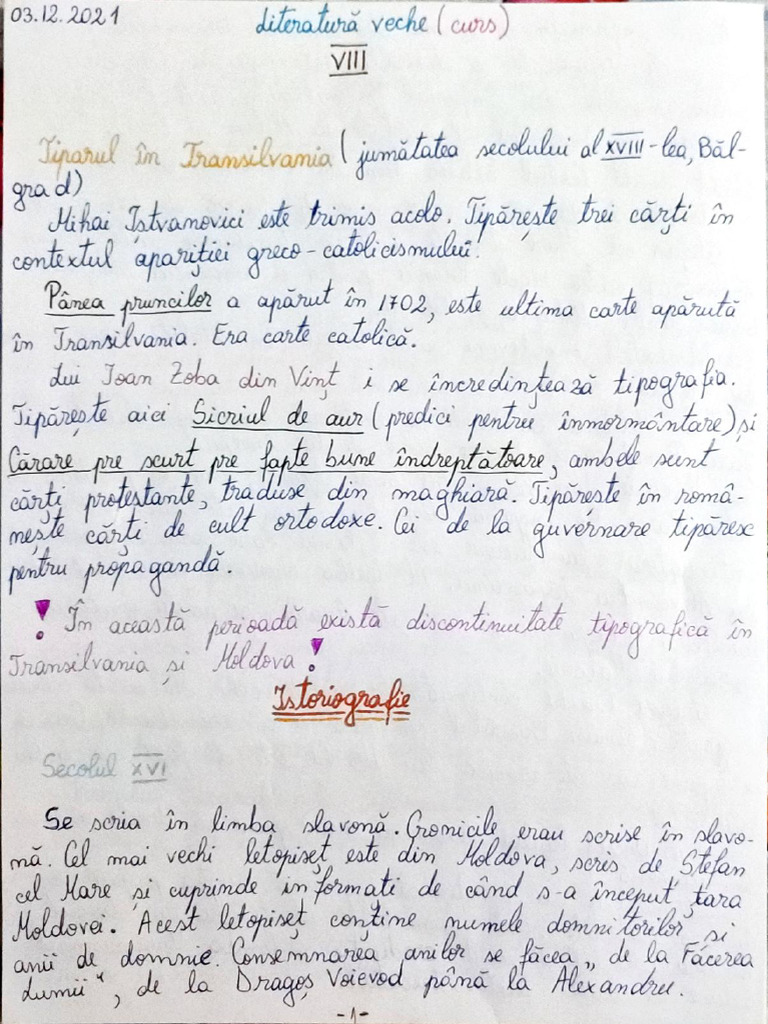 03.12.2021
Literatură veche (curs)
VIII
Tiparul în Transilvania (jumătatea secolului al XVIII-lea, Băl-
grad)
Mihai Iștvanovici este trimis acolo. Tipărește trei cărți în
contextul apariției greco-catolicismului.
Pânea pruncilor a apărut în 1702, este ultima carte apărută
în Transilvania. Era carte catolică.
Lui Ioan Zoba din Vinț i se încredințează tipografia.
Tipărește aici Sicriul de aur (predici pentru înmormântare) și
Cărare pre scurt pre fapte bune îndreptătoare, ambele sunt
cărți protestante, traduse din maghiară. Tipărește în româ-
nește cărți de cult ortodoxe. Cei de la guvernare tipăresc
pentru propagandă.
! În această perioadă există discontinuitate tipografică în
Transilvania și Moldova !
Istoriografie
Secolul XVI
Se scria în limba slavonă. Cronicile erau scrise în slavo-
nă. Cel mai vechi letopiseț este din Moldova, scris de Ștefan
cel Mare și cuprinde informați de când s-a început țara
Moldovei. Acest letopiseț conține numele domnitorilor și
anii de domnie. Consemnarea anilor se făcea „de la Facerea
Lumii“, de la Dragoș Voievod până la Alexandru.
-1-